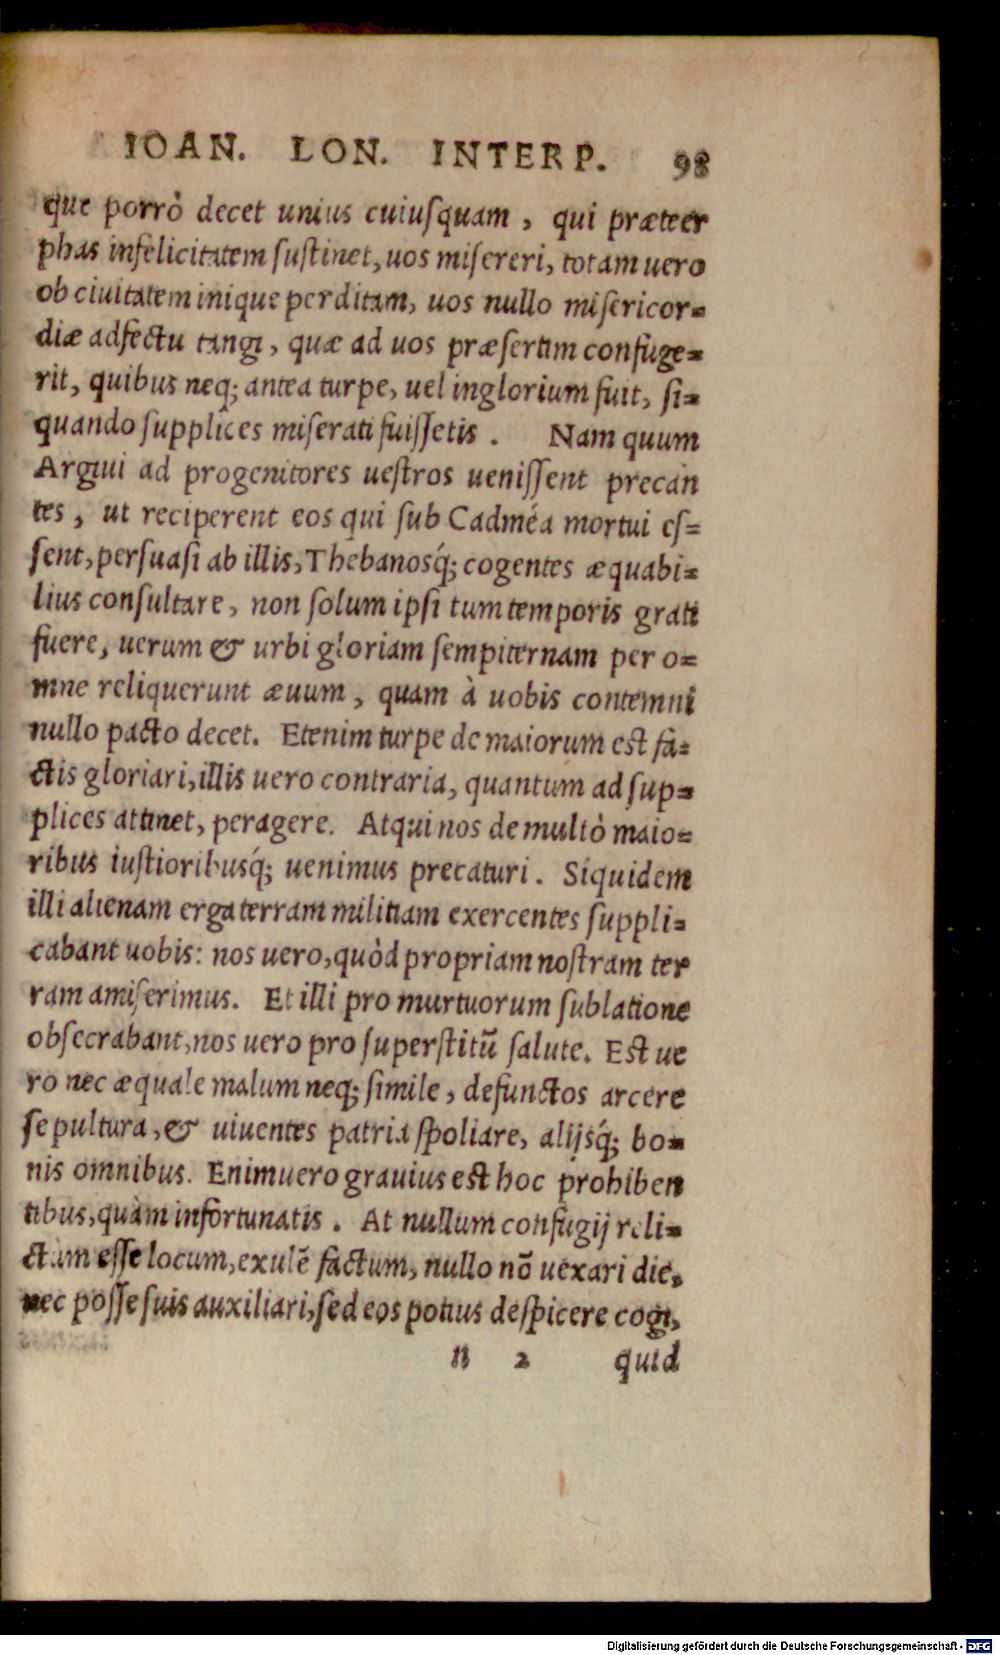 IOAN. LON. INTERP. 98
que porrò decet unius cuiusquam, qui præteer
phas infelicitatem sustinet, uos misereri, totam uero
ob ciuitatem inique perditam, uos nullo misericor=
diæ adfectu tangi, quæ ad uos præsertim confuge=
rit, quibus neq; antea turpe, uel inglorium fuit, si=
quando supplices miserati fuissetis. Nam quum
Argiui ad progenitores uestros uenissent precan
tes, ut reciperent eos qui sub Cadméa mortui es=
sent, persuasi ab illis, Thebanosq́; cogentes æquabi=
lius consultare, non solum ipsi tum temporis grati
fuere, uerum & urbi gloriam sempiternam per o=
mne reliquerunt æuum, quam à uobis contemni
nullo pacto decet. Etenim turpe de maiorum est fa=
ctis gloriari, illis uero contraria, quantum ad sup=
plices attinet, peragere. Atqui nos de multò maio=
ribus iustioribusq́; uenimus precaturi. Siquidem
illi alienam erga terram militiam exercentes suppli=
cabant uobis: nos uero, quòd propriam nostram ter
ram amiserimus. Et illi pro murtuorum sublatione
obsecrabant, nos uero pro superstitū salute. Est ue
ro nec æquale malum neq; simile, defunctos arcere
sepultura, & uiuentes patria spoliare, alijsq́; bo=
nis omnibus. Enimuero grauius est hoc prohiben
tibus, quàm infortunatis. At nullum confugij reli=
ctum esse locum, exulē factum, nullo nō uexari die,
nec posse suis auxiliari, sed eos potius despicere cogi,
n 2 quid
Digitalisierung gefördert durch die Deutsche Forschungsgemeinschaft - DFG